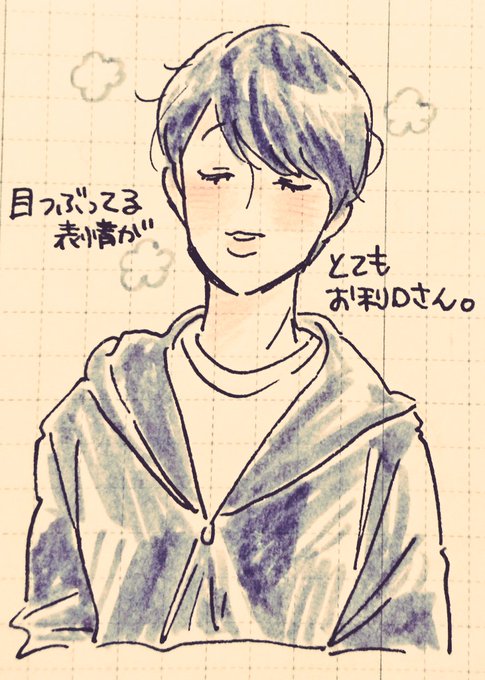 目つぶってる
表情が
とても
お利口さん。